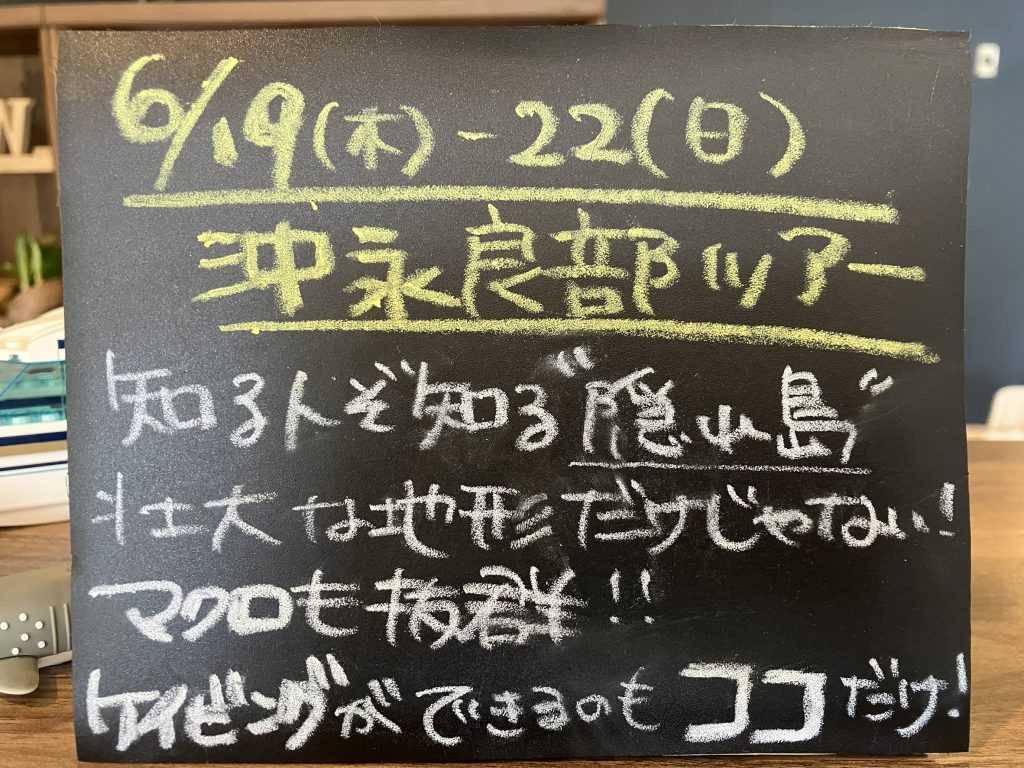 6/19(木)-22(日)
沖永良部ツアー
知る人ぞ知る"隠れ島"
壮大な地形だけじゃない!
マクロも抜群!!
ケイビングができるのもココだけ!
W